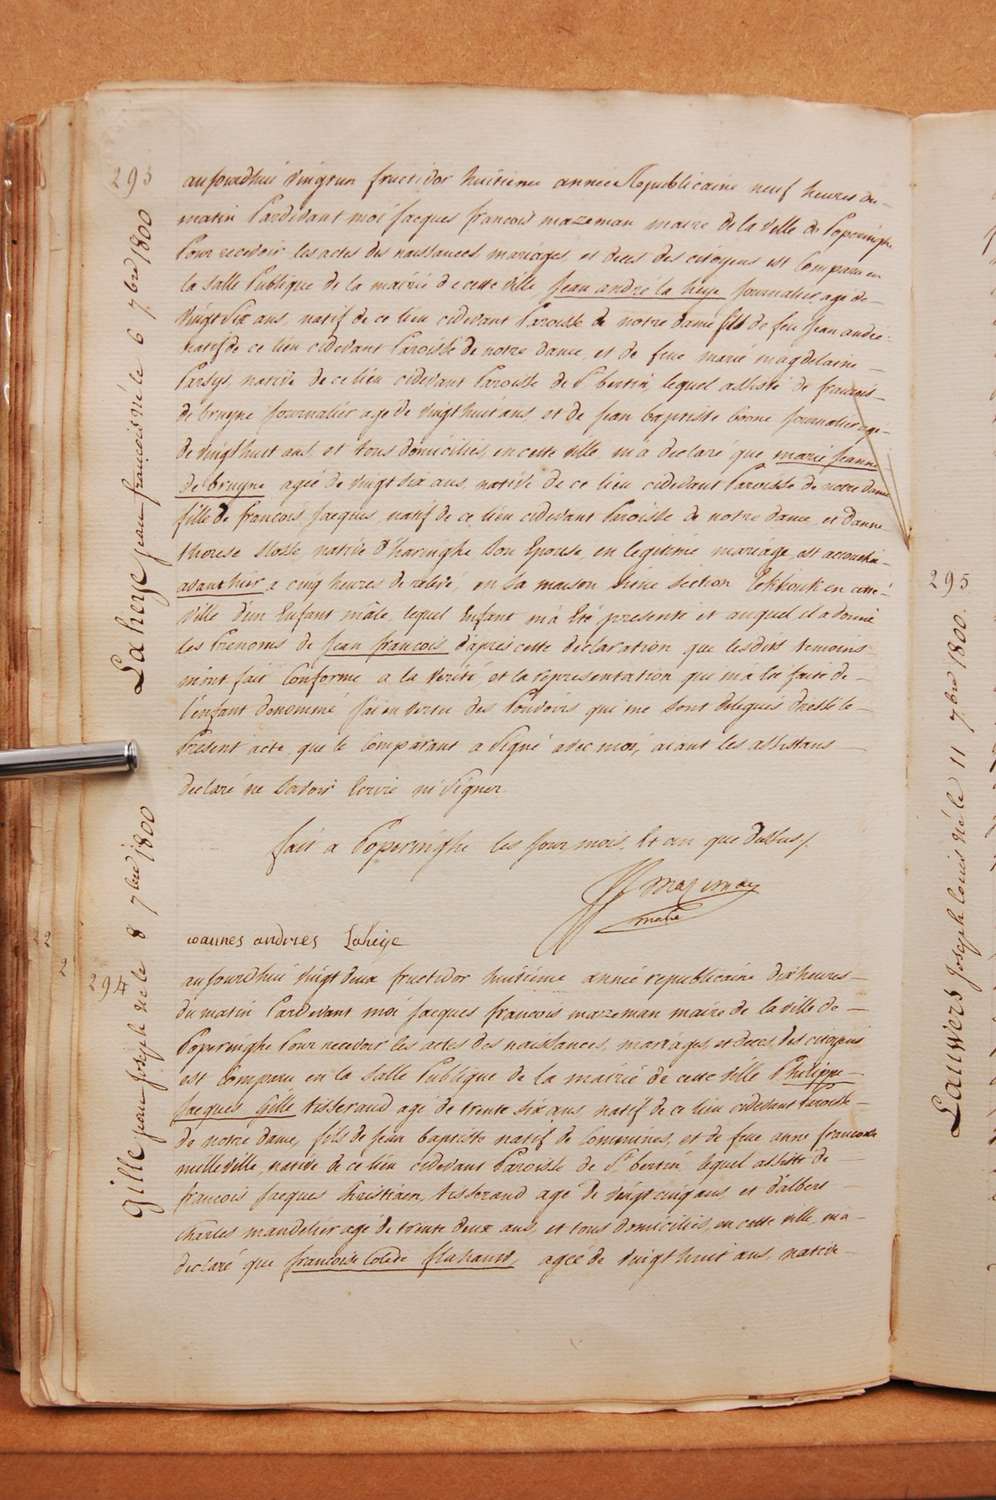 293
Laheye jean francois né le 6 7bre 1800
aujourdhui vingtun fructidor huitieme annee Republicaine neuf heures du
matin Pardevant moi jacques francois mazeman maire de la ville de Poperinghe
Pour recevoir les actes des naissances mariages, et deces des citoyens est Comparu en
la salle Publique de la mairié de cette ville jean andré la heye journalier age de
vingt Six ans, natif de ce lieu cidevant Paroisse de notre dame fils de feu jean andre
natif de ce lieu cidevant Paroisse de notre dame, et de feue marie magdelaine
Parsys, native de ce lieu cidevant Paroisse de St bertin, lequel assisté de francois
de bruyne journalier age de vingt huit ans et de jean baptiste boone journalier age
de vingt huit ans, et tous domiciliés en cette ville m'a declaré que marie jeanne
de bruyne agée de vingt six ans, native de ce lieu cidevant Paroisse de notre dame
fille de francois jacques, natif de ce lieu cidevant Paroisse de notre dame, et danne
therese native d'haringhe Son Epouse en legitime mariage, est accouchée
avanthier a cinq heures de relevé, en sa maison sixe section en cette
ville d'un Enfant mâle, lequel Enfant m'a été presenté et auquel il a donné
les Prenoms de jean francois, d'apres cette declaration que lesdits temoins
m'ont fait Conforme a la verité et la representation qui m'a été faite de
l'enfant denommé j'ai en vertu des Pouvoirs qui me sont delegués dressé le
Present acte, que le Comparant a signé avec moi, aiant les assistans
declaré ne savoir Ecrire ni Signer
fait a Poperinghe les jour mois, et an que dessus /.
JJ mazeman
maire
ioannes andries Laheije
294
Gille jean joseph né le 8 7bre 1800
aujourdhui vingt deux fructidor huitieme année republicaine dix heures
du matin Pardevant moi jacques francois mazeman maire de la ville de
Poperinghe Pour recevoir les actes des naissances, mariages, et deces, des citoyens
est Comparu en la salle Publique de la mairié de cette ville Philippe
jacques Gille tisserand agé de trente six ans natif de ce lieu cidevant Paroisse
de notre dame, fils de jean baptiste natif de Commines, et de feue anne francoise
melleville, native de ce lieu cidevant Paroisse de St bertin, lequel assisté de
francois jacques Christiaen, tisserand agé de vingt cinq ans et d'albert
charles mandelier agé de trente deux ans, et tous domiciliés, en cette ville, m'a
declaré que francoise Colete fluhaut, agée de vingt huit ans, native
295
Lauwers Joseph louis né le 11 7bre 1800.